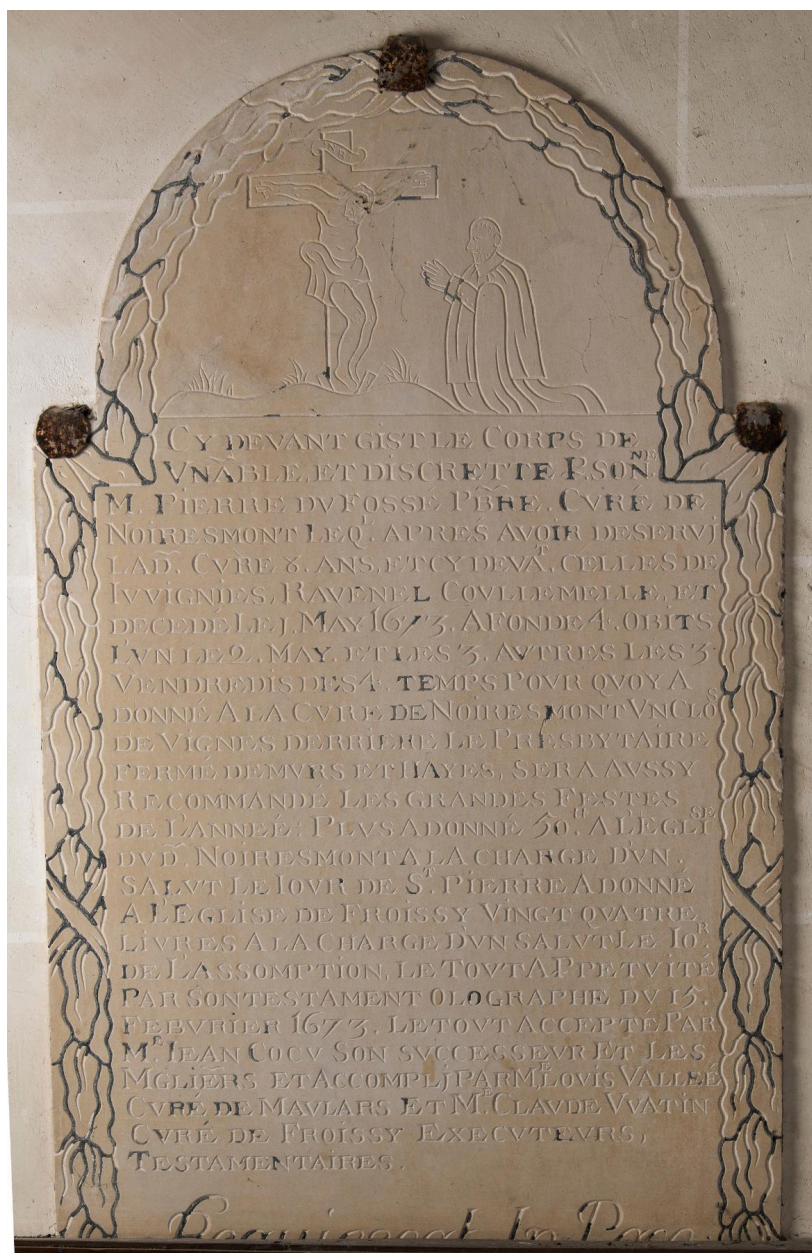 INRI
CY DEVANT GIST LE CORPS DE
VNÃBLE, ET DISCRETTE P.SON.NE
M. PIERRE DV FOSSE PB̃RE. CVRE DE
NOIRESMONT LEQL. APRES AVOIR DESERVJ
LAD̃. CVRE 8. ANS, ET CY DEVAT. CELLES DE
IVVIGNIES, RAVENEL COVLLEMELLE, ET
DECEDÉ LE J. MAY 1673. A FONDE 4. OBITS
L'VN LE 2. MAY. ET LES 3. AVTRES LES 3.
VENDREDIS DES 4. TEMPS POVR QVOY A
DONNÉ A LA CVRE DE NOIRESMONT VN CLOS
DE VIGNES DERRIERE LE PRESBYTAIRE
FERMÉ DE MVRS ET HAYES, SERA AVSSY
RECOMMANDÉ LES GRANDES FESTES
DE L'ANNEÉ: PLVS A DONNÉ 50H. A L'EGLISE
DVD̃. NOIRESMONT A LA CHARGE D'VN.
SALVT LE IOVR DE ST. PIERRE A DONNÉ
A L'EGLISE DE FROISSY VINGT QVATRE
LIVRES A LA CHARGE D'VN SALVT LE IOR.
DE L'ASSOMPTION, LE TOVT A PPETVITÉ
PAR SON TESTAMENT OLOGRAPHE DV 15.
FEBVRIER 1673. LE TOVT ACCEPTÉ PAR
MR. JEAN COCV SON SVCCESSEVR ET LES
MGLIE̅RS ET ACCOMPLJ PAR ME LOVIS VALLEÉ
CVRÉ DE MAVLARS ET ME. CLAVDE VVATIN
CVRÉ DE FROISSY EXECVTEVRS,
TESTAMENTAIRES.
Requiescat In Pace